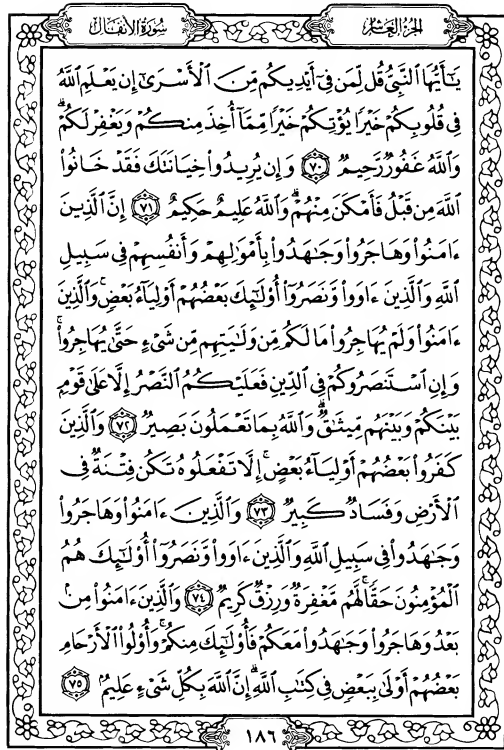 سُورَةُ الأَنفَالِ
الجُزْءُ العَاشِرُ
يَٰٓأَيُّهَا ٱلنَّبِيُّ قُل لِّمَن فِىٓ أَيْدِيكُم مِّنَ ٱلْأَسْرَىٰٓ إِن يَعْلَمِ ٱللَّهُ
فِى قُلُوبِكُمْ خَيْرًا يُؤْتِكُمْ خَيْرًا مِّمَّآ أُخِذَ مِنكُمْ وَيَغْفِرْ لَكُمْۗ
وَٱللَّهُ غَفُورٌ رَّحِيمٌ ٧٠ وَإِن يُرِيدُوا۟ خِيَانَتَكَ فَقَدْ خَانُوا۟
ٱللَّهَ مِن قَبْلُ فَأَمْكَنَ مِنْهُمْۗ وَٱللَّهُ عَلِيمٌ حَكِيمٌ ٧١ إِنَّ ٱلَّذِينَ
ءَامَنُوا۟ وَهَاجَرُوا۟ وَجَٰهَدُوا۟ بِأَمْوَٰلِهِمْ وَأَنفُسِهِمْ فِى سَبِيلِ
ٱللَّهِ وَٱلَّذِينَ ءَاوَوا۟ وَّنَصَرُوٓا۟ أُو۟لَٰٓئِكَ بَعْضُهُمْ أَوْلِيَآءُ بَعْضٍۚ وَٱلَّذِينَ
ءَامَنُوا۟ وَلَمْ يُهَاجِرُوا۟ مَا لَكُم مِّن وَلَٰيَتِهِم مِّن شَىْءٍ حَتَّىٰ يُهَاجِرُوا۟ۚ
وَإِنِ ٱسْتَنصَرُوكُمْ فِى ٱلدِّينِ فَعَلَيْكُمُ ٱلنَّصْرُ إِلَّا عَلَىٰ قَوْمٍۭ
بَيْنَكُمْ وَبَيْنَهُم مِّيثَٰقٌۗ وَٱللَّهُ بِمَا تَعْمَلُونَ بَصِيرٌ ٧٢ وَٱلَّذِينَ
كَفَرُوا۟ بَعْضُهُمْ أَوْلِيَآءُ بَعْضٍۚ إِلَّا تَفْعَلُوهُ تَكُن فِتْنَةٌ فِى
ٱلْأَرْضِ وَفَسَادٌ كَبِيرٌ ٧٣ وَٱلَّذِينَ ءَامَنُوا۟ وَهَاجَرُوا۟
وَجَٰهَدُوا۟ فِى سَبِيلِ ٱللَّهِ وَٱلَّذِينَ ءَاوَوا۟ وَّنَصَرُوٓا۟ أُو۟لَٰٓئِكَ هُمُ
ٱلْمُؤْمِنُونَ حَقًّاۚ لَّهُم مَّغْفِرَةٌ وَرِزْقٌ كَرِيمٌ ٧٤ وَٱلَّذِينَ ءَامَنُوا۟ مِنۢ
بَعْدُ وَهَاجَرُوا۟ وَجَٰهَدُوا۟ مَعَكُمْ فَأُو۟لَٰٓئِكَ مِنكُمْۚ وَأُو۟لُوا۟ ٱلْأَرْحَامِ
بَعْضُهُمْ أَوْلَىٰ بِبَعْضٍ فِى كِتَٰبِ ٱللَّهِۗ إِنَّ ٱللَّهَ بِكُلِّ شَىْءٍ عَلِيمٌۢ ٧٥
١٨٦